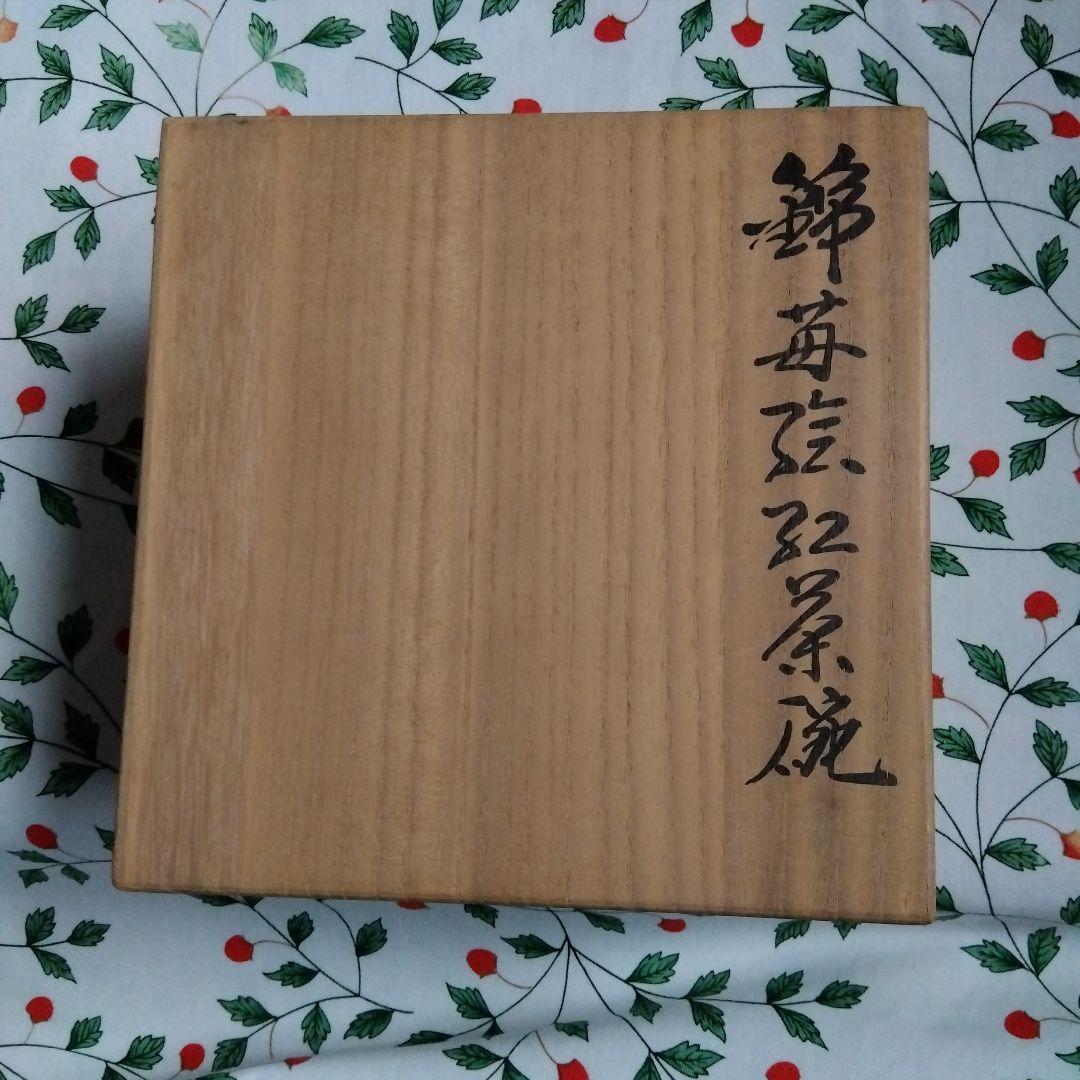 錦苺絵紅茶碗